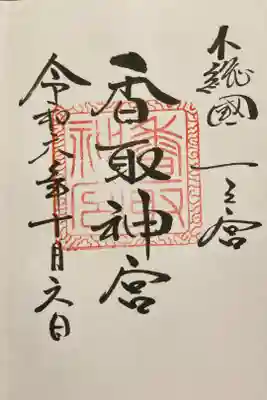 下総國 一之宮
香取神宮
令和六年十月六日